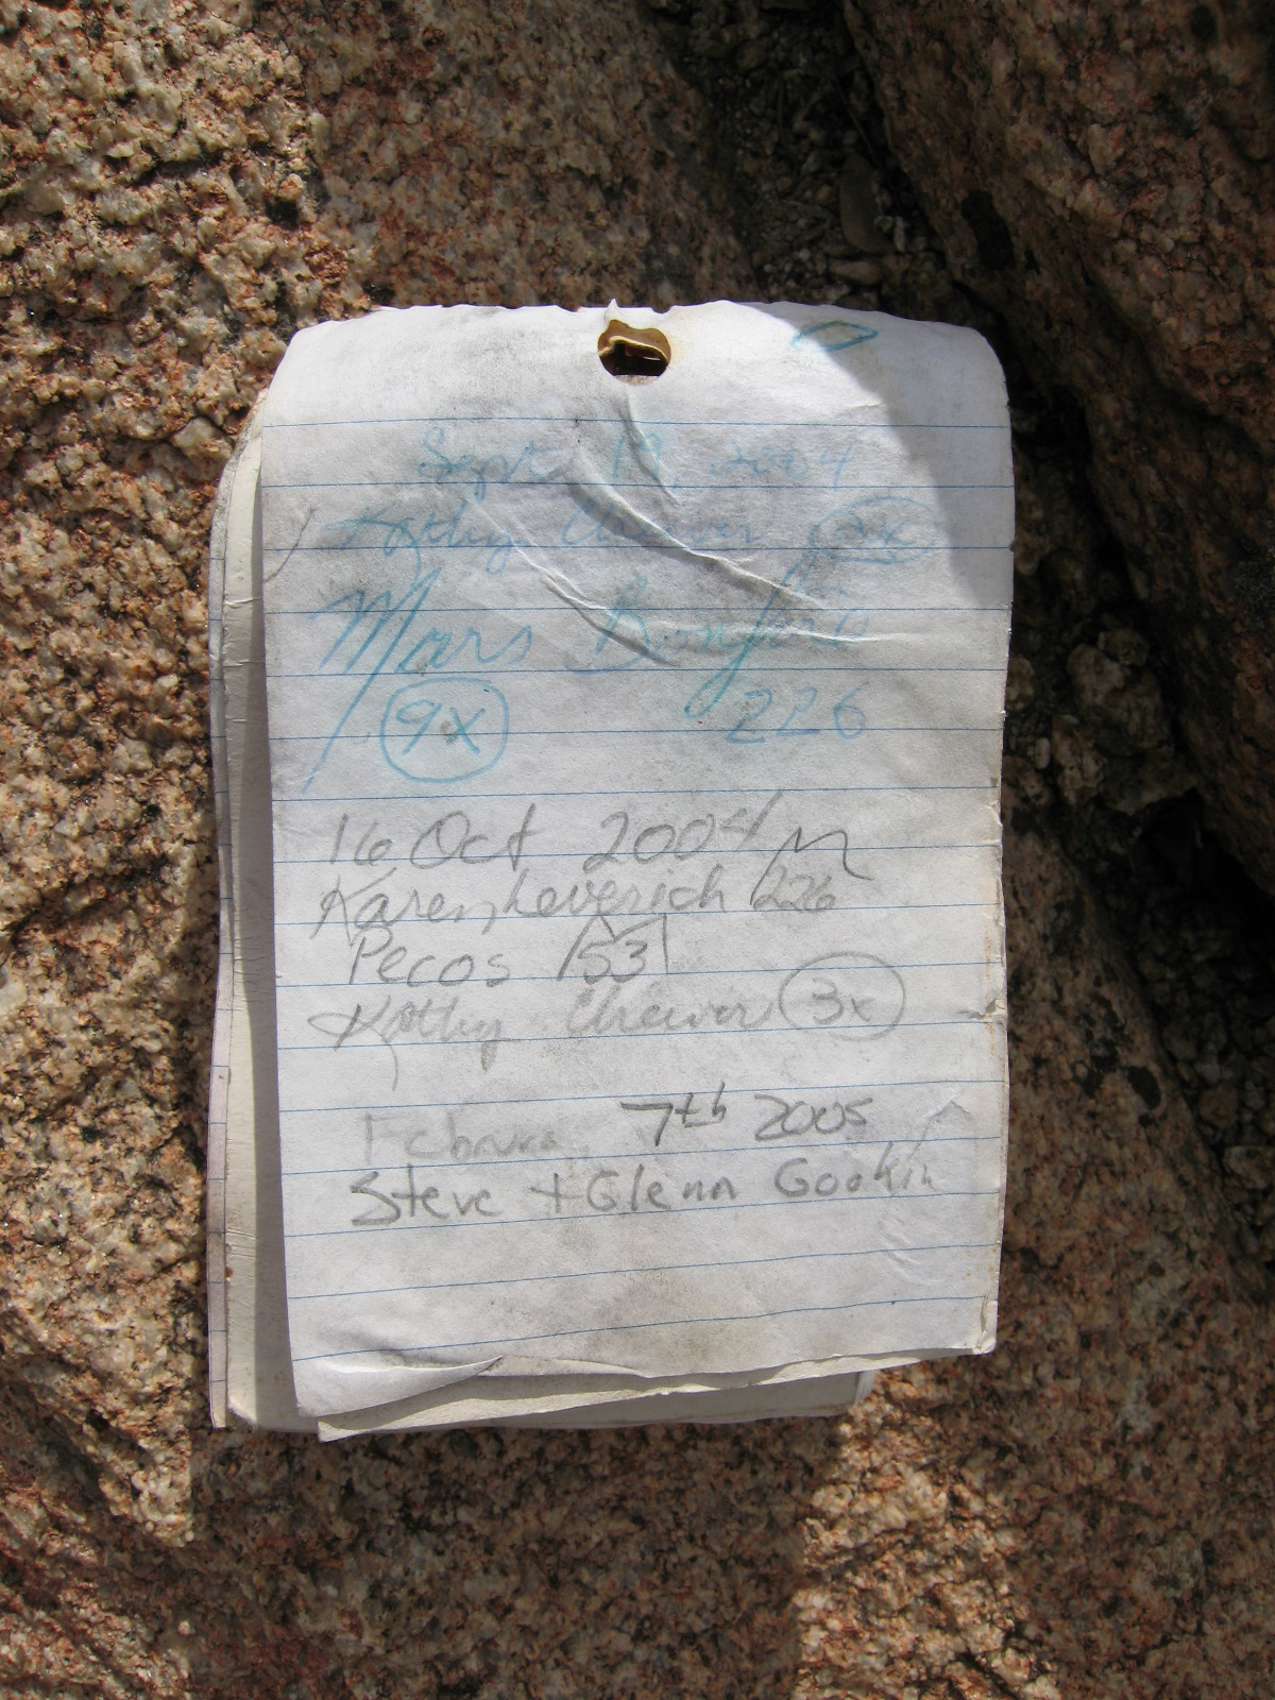 Sept 19, 2004
Kathy Cheever 2x
Mars Bonfire
9x 226
16 Oct 2004
Karen Leverich 226
Pecos 153
Kathy Cheever 3x
7th 2005
Steve + Glenn Gookin